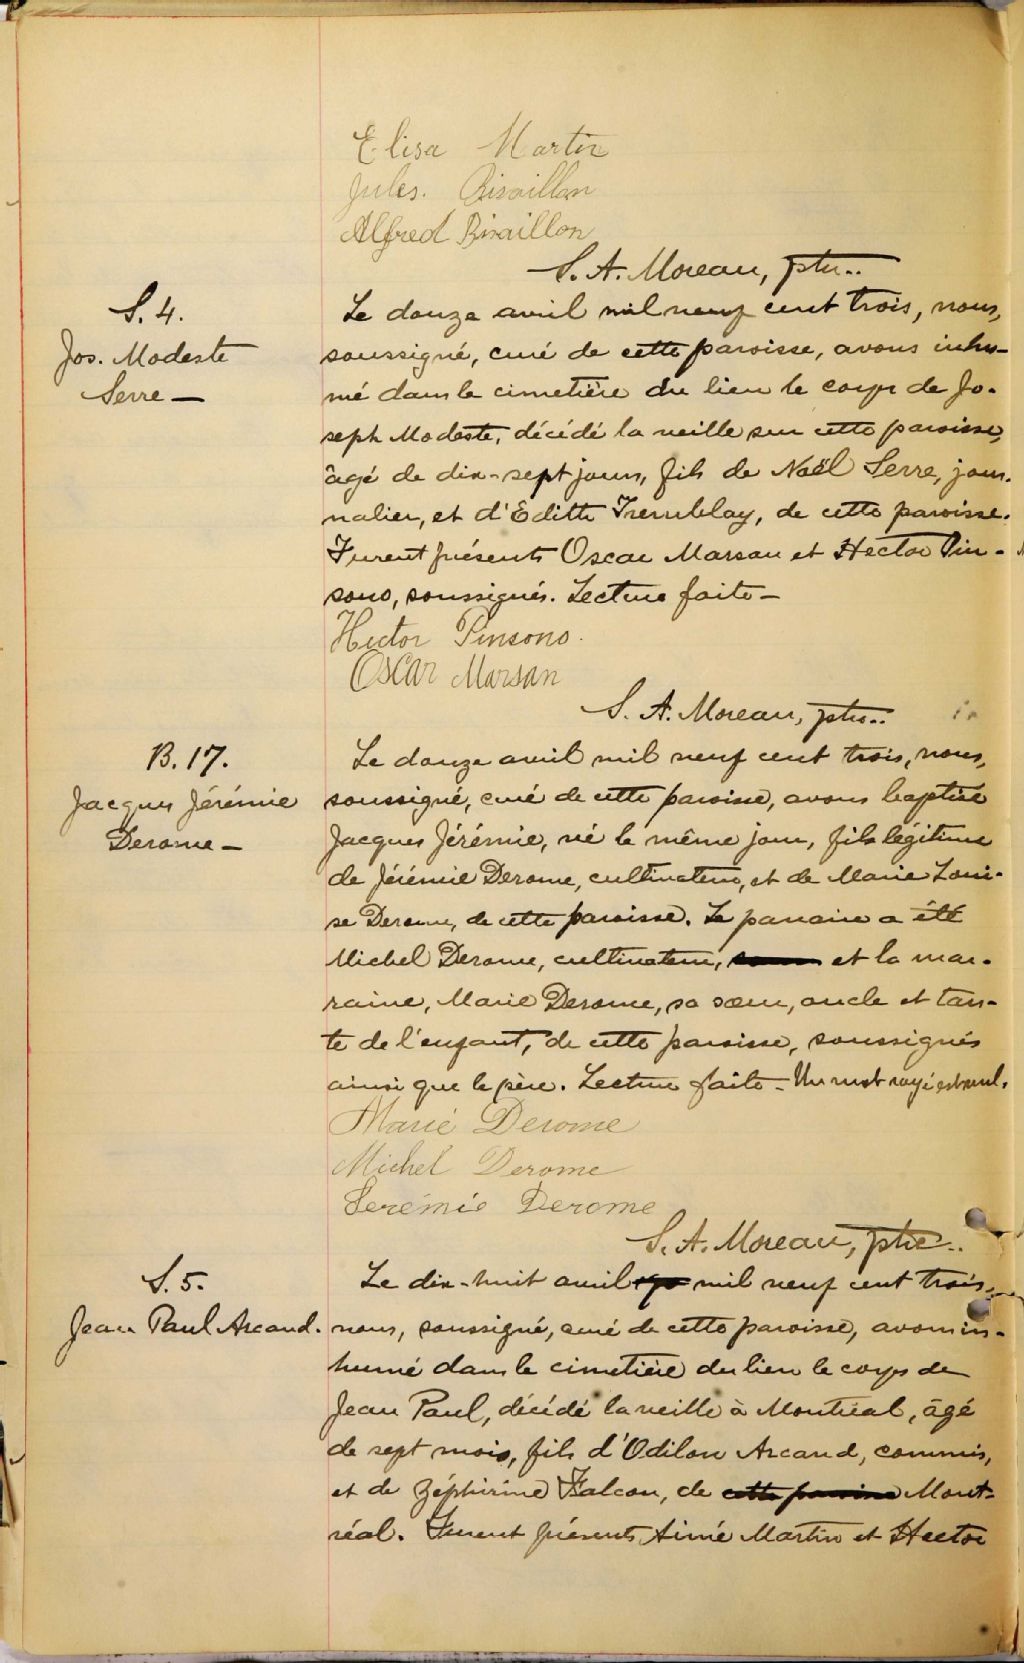 Elisa Martin
Jules. Bisaillon
Alfred Bisaillon
S. A. Moreau, ptre..
S. 4.
Jos. Modeste
Serre —
Le douze avril mil neuf cent trois, nous,
soussigné, curé de cette paroisse, avons inhu-
mé dans le cimetière du lieu le corps de Jo-
seph Modeste, décédé la veille sur cette paroisse,
âgé de dix-sept jours, fils de Noël Serre, jour-
nalier, et d'Edith Tremblay, de cette paroisse.
Furent présents Oscar Marsan et Hector Pin-
sono, soussignés. Lecture faite —
Hector Pinsono.
Oscar Marsan
S. A. Moreau, ptre..
B. 17.
Jacques Jérémie
Derome —
Le douze avril mil neuf cent trois, nous,
soussigné, curé de cette paroisse, avons baptisé
Jacques Jérémie, né le même jour, fils légitime
de Jérémie Derome, cultivateur, et de Marie Loui-
se Derome, de cette paroisse. Le parrain a été
Michel Derome, cultivateur, et la mar-
raine, Marie Derome, sa sœur, oncle et tan-
te de l'enfant, de cette paroisse, soussignés
ainsi que le père. Lecture faite - Un mot rayé est nul.
Marie Derome
Michel Derome
Jerémie Derome
S. A. Moreau, ptre..
S. 5.
Jean Paul Arcand.
Le dix-huit avril mil neuf cent trois,
nous, soussigné, curé de cette paroisse, avons in-
humé dans le cimetière du lieu le corps de
Jean Paul, décédé la veille à Montréal, âgé
de sept mois, fils d'Odilon Arcand, commis,
et de Zéphirine Falcon, de cette paroisse Mont-
réal. Furent présents Aimé Martin et Hector